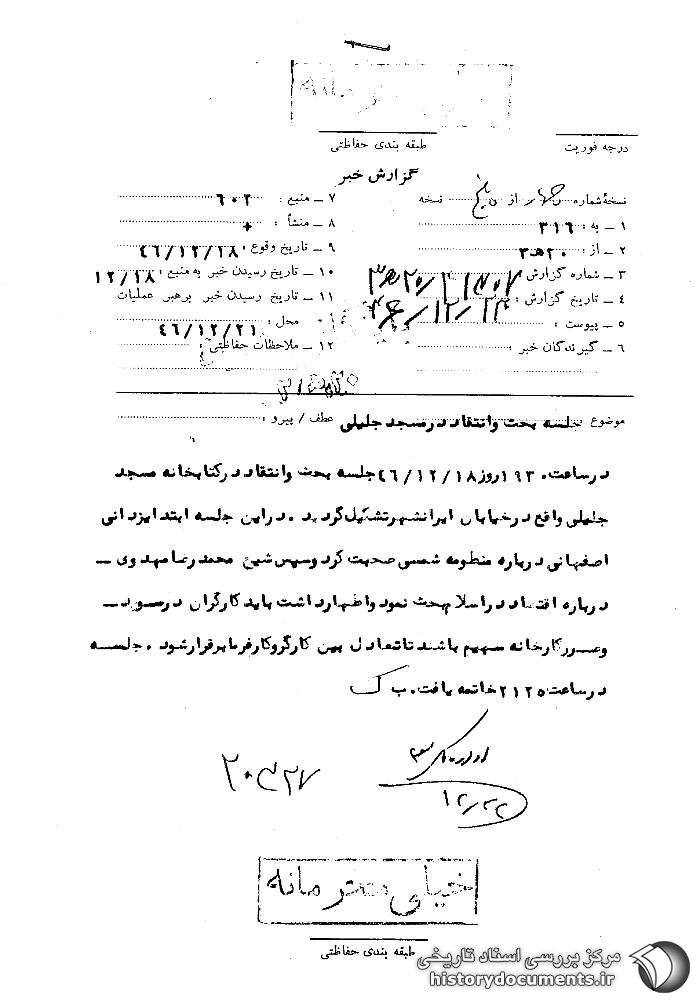 خیلی محرمانه
درجه فوریت
طبقه بندی حفاظتی
گزارش خبر
نسخهٔ شماره چهار از پنج نسخه
۱ ـ به : ۳۱۶
۲ ـ از : ۲۰ هـ ۳
۳ ـ شماره گزارش :
۴ ـ تاریخ گزارش :
۵ ـ پیوست :
۶ ـ گیرندگان خبر :
۷ ـ منبع : ۶۰۲
۸ ـ منشأ :
۹ ـ تاریخ وقوع : ۴۶/۱۲/۱۸
۱۰ ـ تاریخ رسیدن خبر به منبع : ۱۲/۱۸
۱۱ ـ تاریخ رسیدن خبر برهبر عملیات
محل : ۴۶/۱۲/۲۱
۱۲ ـ ملاحظات حفاظتی :
موضوع : جلسه بحث وانتقاد درمسجد جلیلی عطف / پیرو :
درساعت ۱۹۳۰ روز ۴۶/۱۲/۱۸ جلسه بحث وانتقاد درکتابخانه مسجد
جلیلی واقع درخیابان ایرانشهر تشکیل گردید . دراین جلسه ابتدا یزدانی
اصفهانی درباره منظومه شمسی صحبت کرد وسپس شیخ محمدرضا مهدوی ـ
درباره اقتصاد دراسلام بحث نمود واظهارداشت باید کارگران درسود ـ
وضرر کارخانه سهیم باشند تا تعادل بین کارگر وکارفرما برقرار شود . جلسه
درساعت ۲۱۲۵ خاتمه یافت . ب ک
۱۲/۲۲
خیلی محرمانه
طبقه بندی حفاظتی
مرکز بررسی اسناد تاریخی
historydocuments.ir